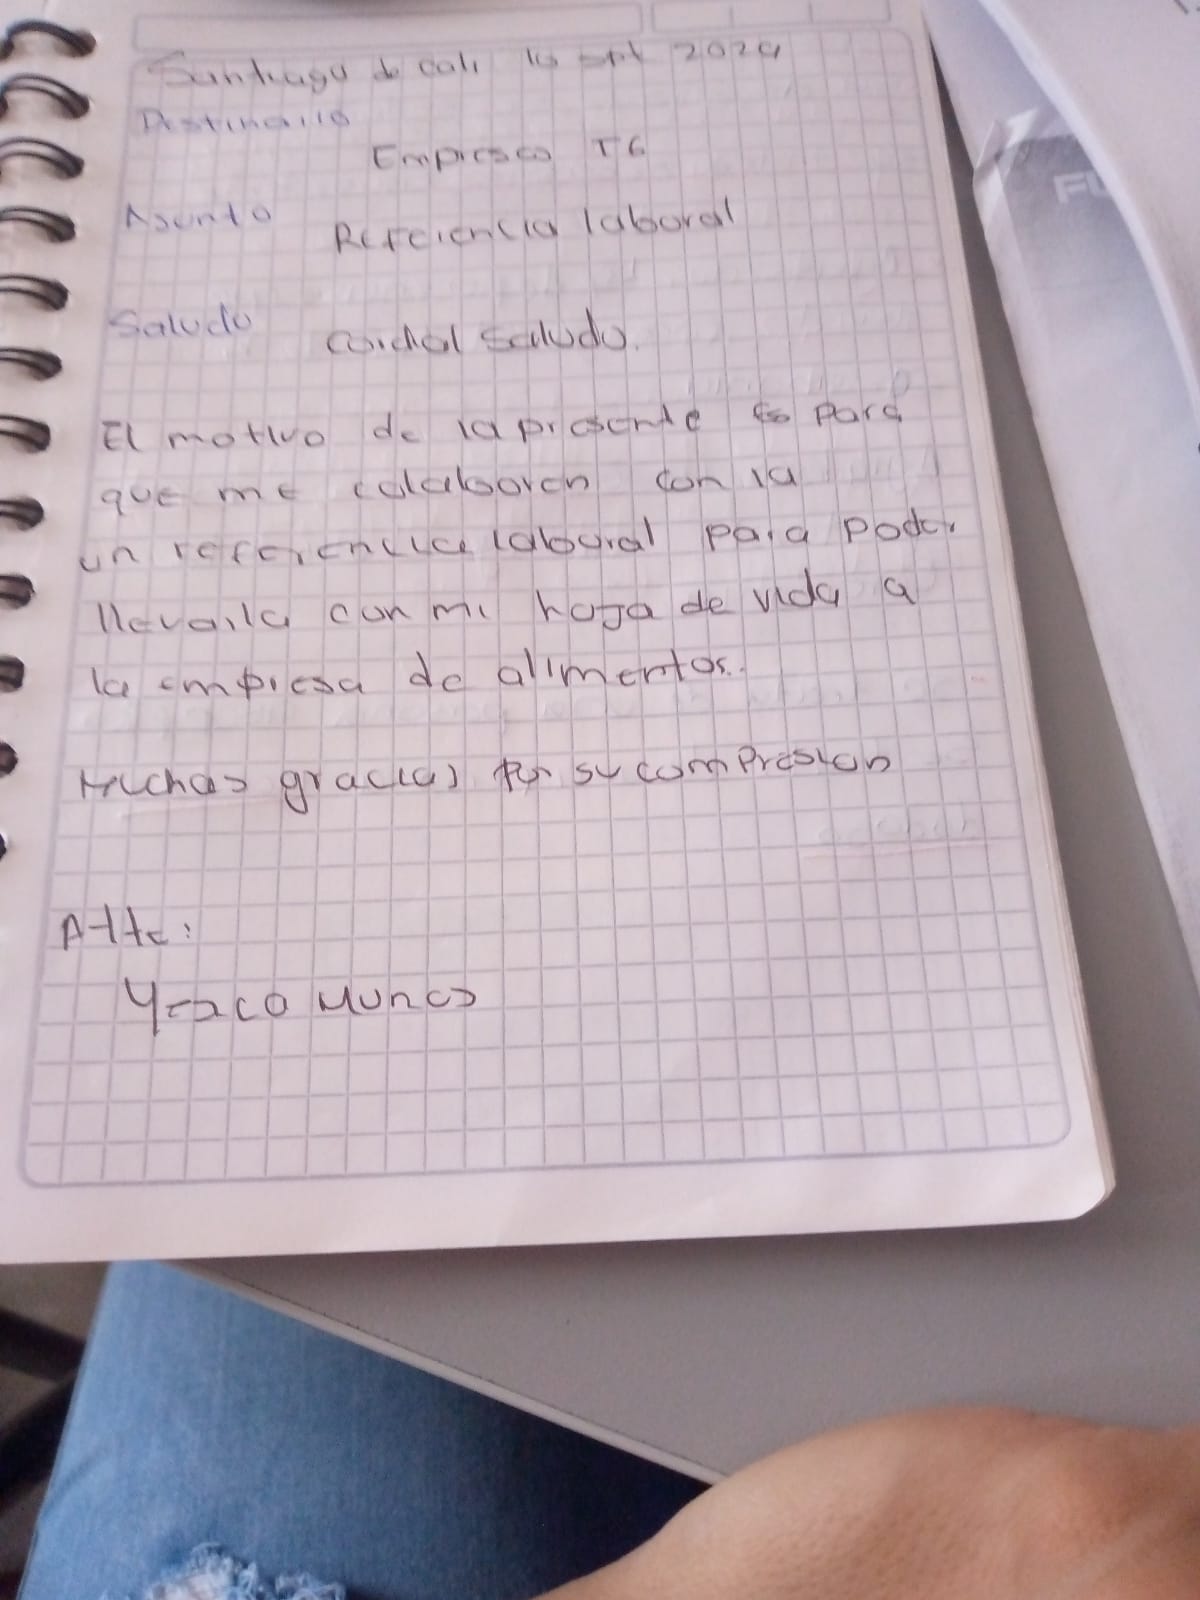 Santiago de cali 10 spt 2024
Destinario
Empresa T6
Asunto
Referencia laboral
Saludo
Cordial Saludo.
El motivo de la presente es para
que me colaboren con la
un referencia laboral para poder
llevarla con mi hoja de vida a
la empresa de alimentos.
Muchas gracias por su compresion
Atte: